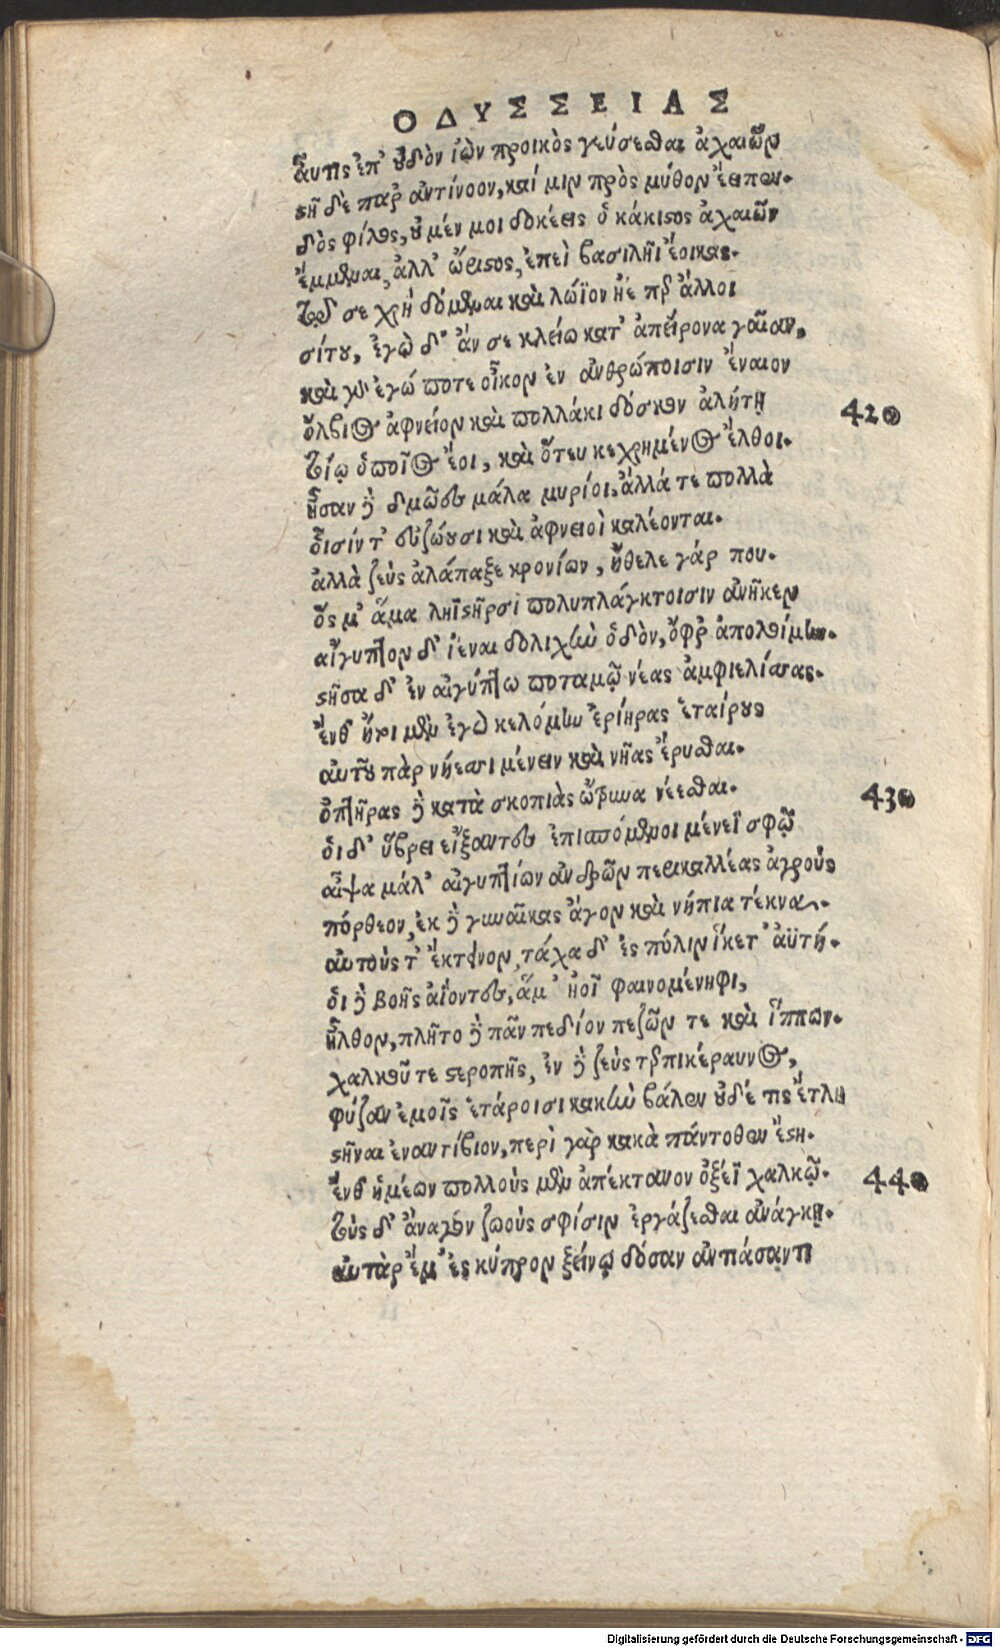 ΟΔΥΣΣΕΙΑΣ
αὖτις ἐπ' οὐδὸν ἰὼν προικὸς γεύσεσθαι ἀχαιῶν
στῆ δὲ παρ' ἀντίνοον, καί μιν πρὸς μῦθον ἔειπεν.
δὸς φίλος, οὐ μέν μοι δοκέεις ὁ κάκιστος ἀχαιῶν
ἔμμεναι, ἀλλ' ὤριστος, ἐπεὶ βασιλῆϊ ἔοικας.
τῷ σε χρὴ δόμεναι καὶ λώϊον ἠέ περ ἄλλοι
σίτου, ἐγὼ δ' ἄν σε κλείω κατ' ἀπείρονα γαῖαν,
καὶ γὰρ ἐγώ ποτε οἶκον ἐν ἀνθρώποισιν ἔναιον
ὄλβιος ἀφνείον καὶ πολλάκι δόσκον ἀλήτῃ 420
τοίῳ ὁποῖος ἔοι, καὶ ὅτευ κεχρημένος ἔλθοι.
ἦσαν δὲ δμῶες μάλα μυρίοι, ἀλλά τε πολλὰ
οἷσίν τ' εὐζώουσι καὶ ἀφνειοὶ καλέονται.
ἀλλὰ ζεὺς ἀλάπαξε κρονίων, ἤθελε γάρ που.
ὅς μ' ἅμα ληϊστῆρσι πολυπλάγκτοισιν ἀνῆκεν
αἴγυπτον δ' ἰέναι δολιχὴν ὁδὸν, ὄφρ' ἀπολοίμην.
στῆσα δ' ἐν αἰγύπτω ποταμῷ νέας ἀμφιελίσσας.
ἔνθ' ἤτοι μὲν ἐγὼ κελόμην ἐρίηρας ἑταίρους
αὐτοῦ πὰρ νήεσσι μένειν καὶ νῆας ἔρυσθαι.
ὀπτῆρας δὲ κατὰ σκοπιὰς ὤτρυνα νέεσθαι. 430
οἱ δ' ὕβρει εἴξαντες ἐπισπόμενοι μένεϊ σφῷ
αἶψα μάλ' αἰγυπτίων ἀνδρῶν περικαλλέας ἀγροὺς
πόρθεον, ἐκ δὲ γυναῖκας ἄγον καὶ νήπια τέκνα.
αὐτούς τ' ἔκτεινον, τάχα δ' ἐς πόλιν ἵκετ' ἀϋτή.
οἱ δὲ βοῆς ἀΐοντες, ἅμ' ἠοῖ φαινομένηφι,
ἦλθον, πλῆτο δὲ πᾶν πεδίον πεζῶν τε καὶ ἵππων.
χαλκοῦ τε στεροπῆς, ἐν δὲ ζεὺς τερπικέραυνος,
φύζαν ἐμοῖς ἑτάροισι κακὴν βάλεν οὐδέ τις ἔτλη
στῆναι ἐναντίβιον, περὶ γὰρ κακὰ πάντοθεν ἔστη.
ἔνθ' ἡμέων πολλοὺς μὲν ἀπέκτανον ὀξέϊ χαλκῷ. 440
τοὺς δ' ἄναγον ζωοὺς σφίσιν ἐργάζεσθαι ἀνάγκῃ.
αὐτὰρ ἔμ' ἐς κύπρον ξείνῳ δόσαν ἀντιάσαντι
Digitalisierung gefördert durch die Deutsche Forschungsgemeinschaft - DFG